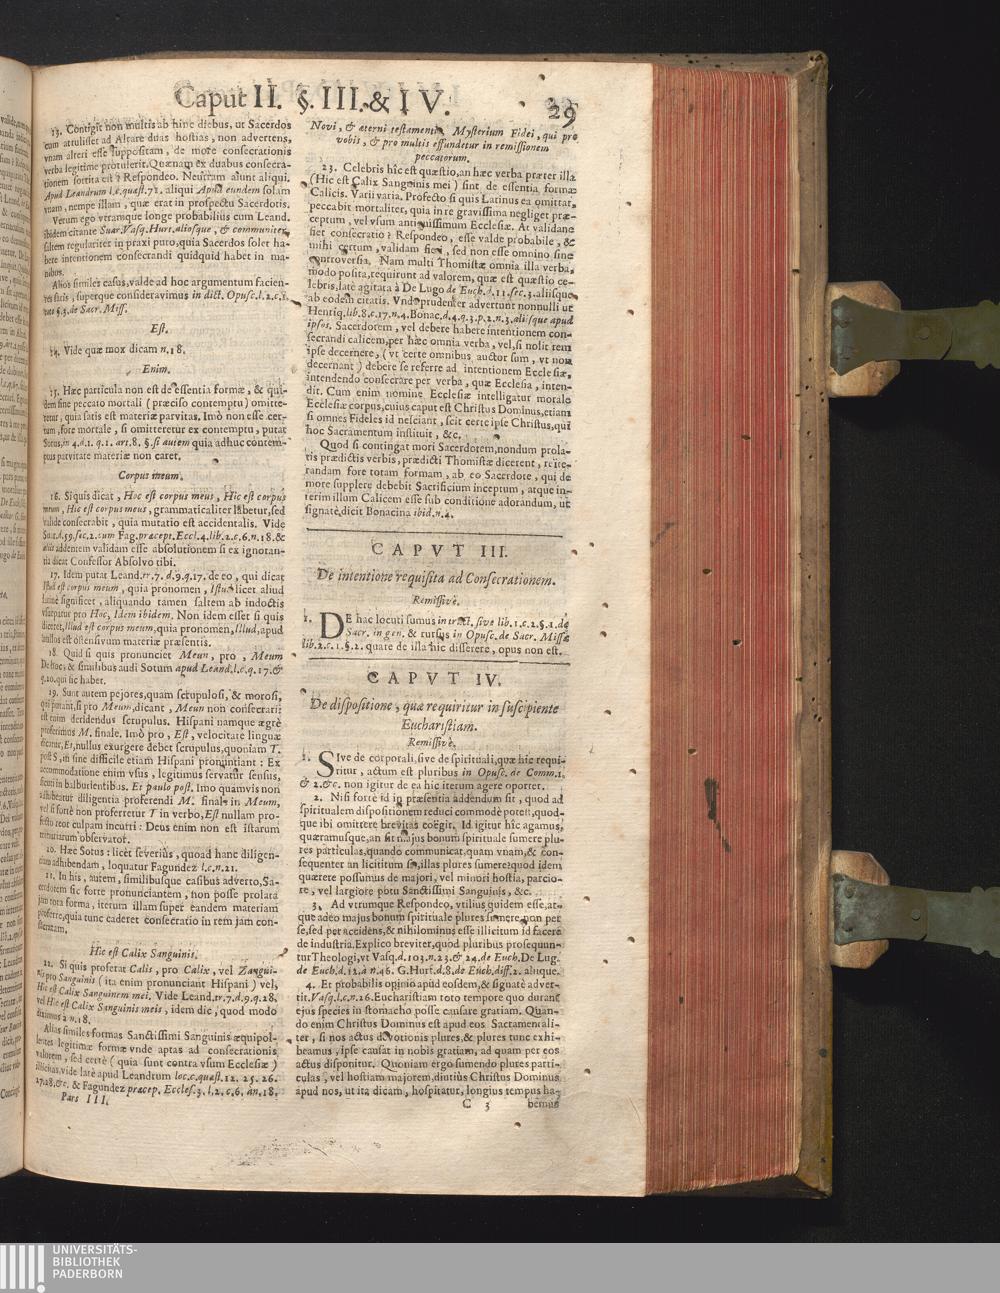 Caput II. §. III. & IV. 29
13. Contigit non multis ab hinc diebus, ut Sacerdos
cum attulisset ad Altare duas hostias, non advertens,
unam alteri esse suppositam, de more consecrationis
verba legitime protulerit. Quænam ex duabus consecra-
tionem sortita est? Respondeo. Neutram aiunt aliqui.
Apud Leandrum l.c.quæst.72. aliqui Apud eundem solam
unam, nempe illam, quæ erat in prospectu Sacerdotis.
Verum ego utramque longe probabilius cum Leand.
ibidem citante Suar.Vasq.Hurt.aliosque, & communiter,
saltem regulariter in praxi puto, quia Sacerdos solet ha-
bere intentionem consecrandi quidquid habet in ma-
nibus.
Alios similes casus, valde ad hoc argumentum facien-
tes satis, superque consideravimus in dict. Opusc.l.2.c.1.
toto §.3. de Sacr. Miss.
Est.
14. Vide quæ mox dicam n.18.
Enim.
15. Hæc particula non est de essentia formæ, & qui-
dem sine peccato mortali (præciso contemptu) omitte-
retur, quia satis est materiæ parvitas. Imò non esse cer-
tum, fore mortale, si omitteretur ex contemptu, putat
Sotus, in 4.d.1. q.1. art.8. §. si autem quia adhuc contem-
ptus parvitate materiæ non caret.
Corpus meum.
16. Si quis dicat, Hoc est corpus meus, Hic est corpus
meum, Hic est corpus meus, grammaticaliter labetur, sed
valide consecrabit, quia mutatio est accidentalis. Vide
Suar.d.59.sec.2. cum Fag. præcept. Eccl.4. lib.2.c.6.n.18. &
aliis addentem validam esse absolutionem si ex ignoran-
tia dicat Confessor Absolvo tibi.
17. Idem putat Leand.tr.7. d.9.q.17. de eo, qui dicat
Istud est corpus meum, quia pronomen, Istud licet aliud
Latinè significet, aliquando tamen saltem ab indoctis
usurpatur pro Hoc, Idem ibidem. Non idem esset si quis
diceret, Illud est corpus meum, quia pronomen, Illud, apud
nullos est ostensivum materiæ præsentis.
18. Quid si quis pronunciet Meun, pro, Meum
De hoc, & similibus audi Sotum apud Leand.l.c.q.17. &
q.20. qui sic habet.
19. Sunt autem pejores, quam scrupulosi, & morosi,
qui putant, si pro Meum, dicant, Meun non consecrari:
est enim deridendus scrupulus. Hispani namque ægrè
proferimus M. finale. Imò pro, Est, velocitate linguæ
dicatur, Et, nullus exurgere debet scrupulus, quoniam T.
post S, in fine difficile etiam Hispani pronuntiant: Ex
accommodatione enim usus, legitimus servatur sensus,
sicuti in balbutientibus. Et paulo post. Imo quamvis non
adhibeatur diligentia proferendi M. finale in Meum,
vel si fortè non proferretur T in verbo, Est nullam pro-
fecto reor culpam incurri: Deus enim non est istarum
minutiarum observator.
20. Hæc Sotus: licèt severiùs, quoad hanc diligen-
tiam adhibendam, loquatur Fagundez l.c.n.21.
21. In his, autem, similibusque casibus adverto, Sa-
cerdotem sic forte pronunciantem, non posse prolatâ
jam tota forma, iterum illam super eandem materiam
proferre, quia tunc caderet consecratio in rem jam con-
secratam.
Hic est Calix Sanguinis.
22. Si quis proferat Calis, pro Calix, vel Zangui-
nis pro Sanguinis (ita enim pronunciant Hispani) vel,
Hic est Calix Sanguinem mei. Vide Leand.tr.7.d.9.q.28.
vel Hic est Calix Sanguinis meis, idem dic, quod modo
diximus à n.18.
Alias similes formas Sanctissimi Sanguinis æquipol-
lentes legitimæ formæ unde aptas ad consecrationis
valorem, sed certè (quia sunt contra usum Ecclesiæ)
illicitas, vide latè apud Leandrum loc.c.quæst.12. 25. 26.
27.28.&c. & Fagundez præcep. Eccles.3. l.2.c.6. àn.18.
Pars III.
Novi, & æterni testamenti, Mysterium Fidei, qui pro
vobis, & pro multis effundetur in remissionem
peccatorum.
23. Celebris hîc est quæstio, an hæc verba præter illa
(Hic est Calix Sanguinis mei) sint de essentia formæ
Calicis. Varii varia. Profecto si quis Latinus ea omittat,
peccabit mortaliter, quia in re gravissima negliget præ-
ceptum, vel usum antiquissimum Ecclesiæ. At validane
fiet consecratio? Respondeo, esse valde probabile, &
mihi certum, validam fieri, sed non esse omnino sine
controversia. Nam multi Thomistæ omnia illa verba,
modo posita, requirunt ad valorem, quæ est quæstio ce-
lebris, latè agitata à De Lugo de Euch.d.11.sec.3. aliisque
ab eodem citatis. Unde prudenter advertunt nonnulli ut
Henriq.lib.8.c.17.n.4. Bonac.d.4.q.3.p.2.n.3. aliisque apud
ipsos. Sacerdotem, vel debere habere intentionem con-
secrandi calicem, per hæc omnia verba, vel, si nolit rem
ipse decernere, (ut certe omnibus auctor sum, ut non
decernant) debere se referre ad intentionem Ecclesiæ,
intendendo consecrare per verba, quæ Ecclesia, inten-
dit. Cum enim nomine Ecclesiæ intelligatur morale
Ecclesiæ corpus, cuius caput est Christus Dominus, etiam
si omnes Fideles id nesciant, scit certe ipse Christus, qui
hoc Sacramentum instituit, &c.
Quod si contingat mori Sacerdotem, nondum prola-
tis prædictis verbis, prædicti Thomistæ dicerent, reite-
randam fore totam formam, ab eo Sacerdote, qui de
more supplere debebit Sacrificium inceptum, atque in-
terim illum Calicem esse sub conditione adorandum, ut
signatè, dicit Bonacina ibid.n.4.
CAPVT III.
De intentione requisita ad Consecrationem.
Remissivè.
1. DE hac locuti sumus in tract. sive lib.1.c.2.§.2. de
Sacr. in gen. & rursus in Opusc. de Sacr. Missæ
lib.2.c.1.§.2. quare de illa hic disserere, opus non est.
CAPVT IV.
De dispositione, quæ requiritur in suscipiente
Eucharistiam.
Remissivè.
1. SIve de corporali, sive de spirituali, quæ hîc requi-
ritur, actum est pluribus in Opusc. de Comm.1.
& 2.&c. non igitur de ea hîc iterum agere oportet.
2. Nisi fortè id in præsentia addendum sit, quod ad
spiritualem dispositionem reduci commodè potest, quod-
que ibi omittere brevitas coëgit. Id igitur hîc agamus,
quæramusque, an sit majus bonum spirituale sumere plu-
res particulas, quando communicat, quam unam, & con-
sequenter an licititum sit, illas plures sumere? quod idem
quærere possumus de majori, vel minori hostia, parcio-
re, vel largiore potu Sanctissimi Sanguinis, &c.
3. Ad utrumque Respondeo, utilius quidem esse, at-
que adeo majus bonum spirituale plures sumere, non per
se, sed per accidens, & nihilominus esse illicitum id facere
de industria. Explico breviter, quòd pluribus prosequun-
tur Theologi, ut Vasq.d.103.n.23.& 24. de Euch. De Lug.
de Euch.d.12.à n.46. G.Hurt.d.8.de Euch.diff.2. aliique.
4. Et probabilis opinio apud eosdem, & signatè adver-
tit. Vasq.l.c.n.26. Eucharistiam toto tempore quo durant
ejus species in stomacho posse causare gratiam. Quan-
do enim Christus Dominus est apud eos Sacramentali-
ter, si nos actus devotionis plures, & plures tunc exhi-
beamus, ipse causat in nobis gratiam, ad quam per eos
actus disponitur. Quoniam ergo sumendo plures parti-
culas, vel hostiam majorem, diutiùs Christus Dominus
apud nos, ut ita dicam, hospitatur, longius tempus ha-
C 3 bemus
UNIVERSITÄTS-
BIBLIOTHEK
PADERBORN